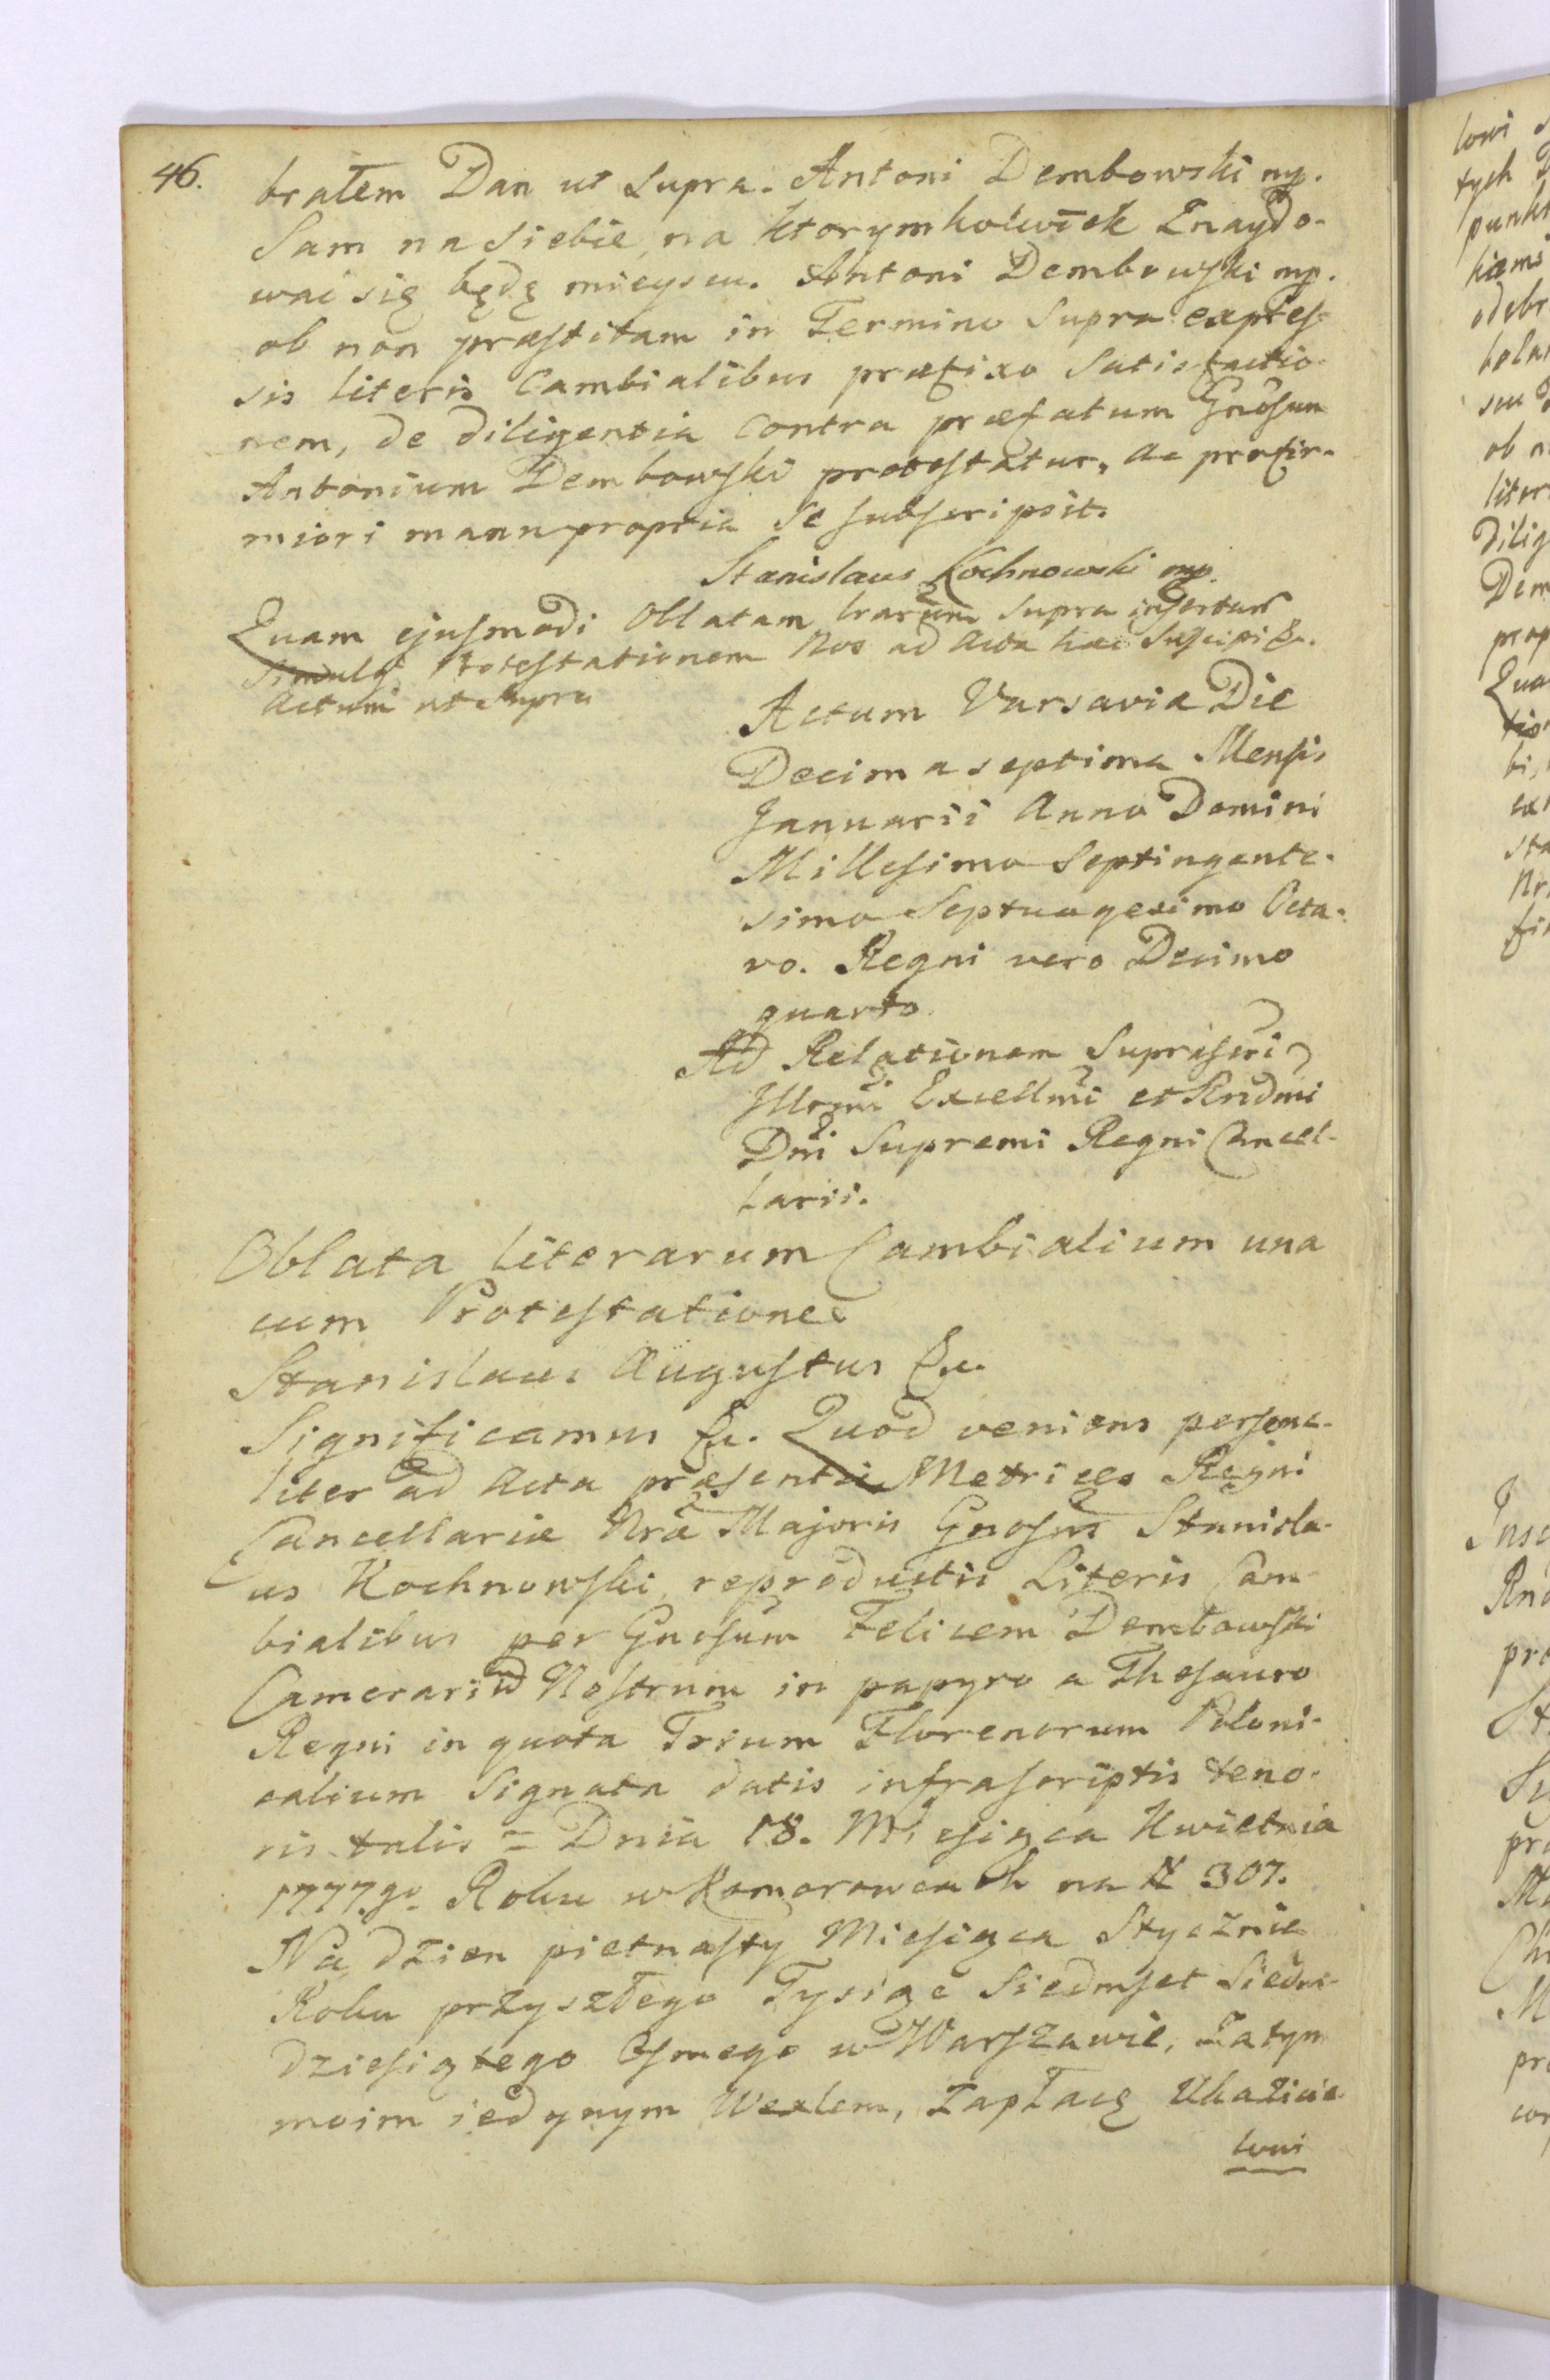 46.
brałem Dan ut Supra. Antoni Dembowski mp.
Sam na siebie, na ktorymkolwiek Znaydo-
wać się będę mieyscu. Antoni Dembowski mp.
ob non præstitam in Termino Supra expres-
sis literis Cambialibus præfixo Satisfactio-
nem, de diligentia contra præfatum Gnosum
Antonium Dembowski protestatur, ac pro fir-
miori manu propria Se subscripsit.
Stanislaus Kochnowski mp.
Quam ejusmodi Oblatam lrarum supra insertarum
Simulq Protestationem Nos ad Acta hæc Suscipi &c.
Actum ut Supra
Actum Varsaviæ Die
Decima septima Mensis
Januarii Anno Domini
Millesimo Septingente-
simo Septuagesimo Octa-
vo. Regni vero Decimo
quarto.
Ad Relationem Suprascri
Illrmi Excellmi et Rndmi
Dni Supremi Regni Cancel-
larii.
Oblata literarum Cambialium una
cum Protestatione
Stanislaus Augustus &c.
Significamus &c. Quod veniens persona-
liter ad Acta præsentis Metrices Regni
Cancellariæ Nræ Majoris Gnosus Stanisla-
us Kochnowski reproductis Literis Cam-
bialibus per Gnosum Felicem Dembowski
Camerariū Nostrum in papyro a Thesauro
Regni in quota Trium Florenorum Poloni-
calium Signata datis infrascriptis teno-
ris talis = Dnia 18. Miesiąca Kwietnia
1777.go Roku w Komorowcach na # 307.
Na dzien pietnasty Miesiąca Stycznia
Roku przyszłego Tysiąc Siedmset Siedm-
dziesiątego Osmego w Warszawie, Za tym
moim iedynym Wexlem, Zapłacę Ukazicie-
lowi